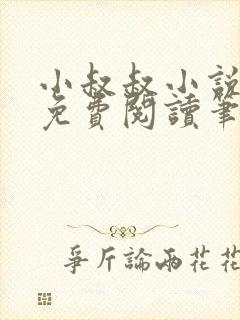 小叔叔小說
免費閱讀筆
爭斤論兩花花